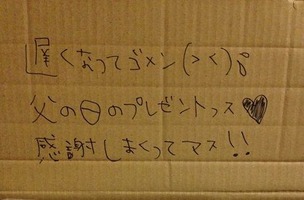 遅くなってゴメン(><)。
父の日のプレゼントっス♥
感謝しまくってマス!!